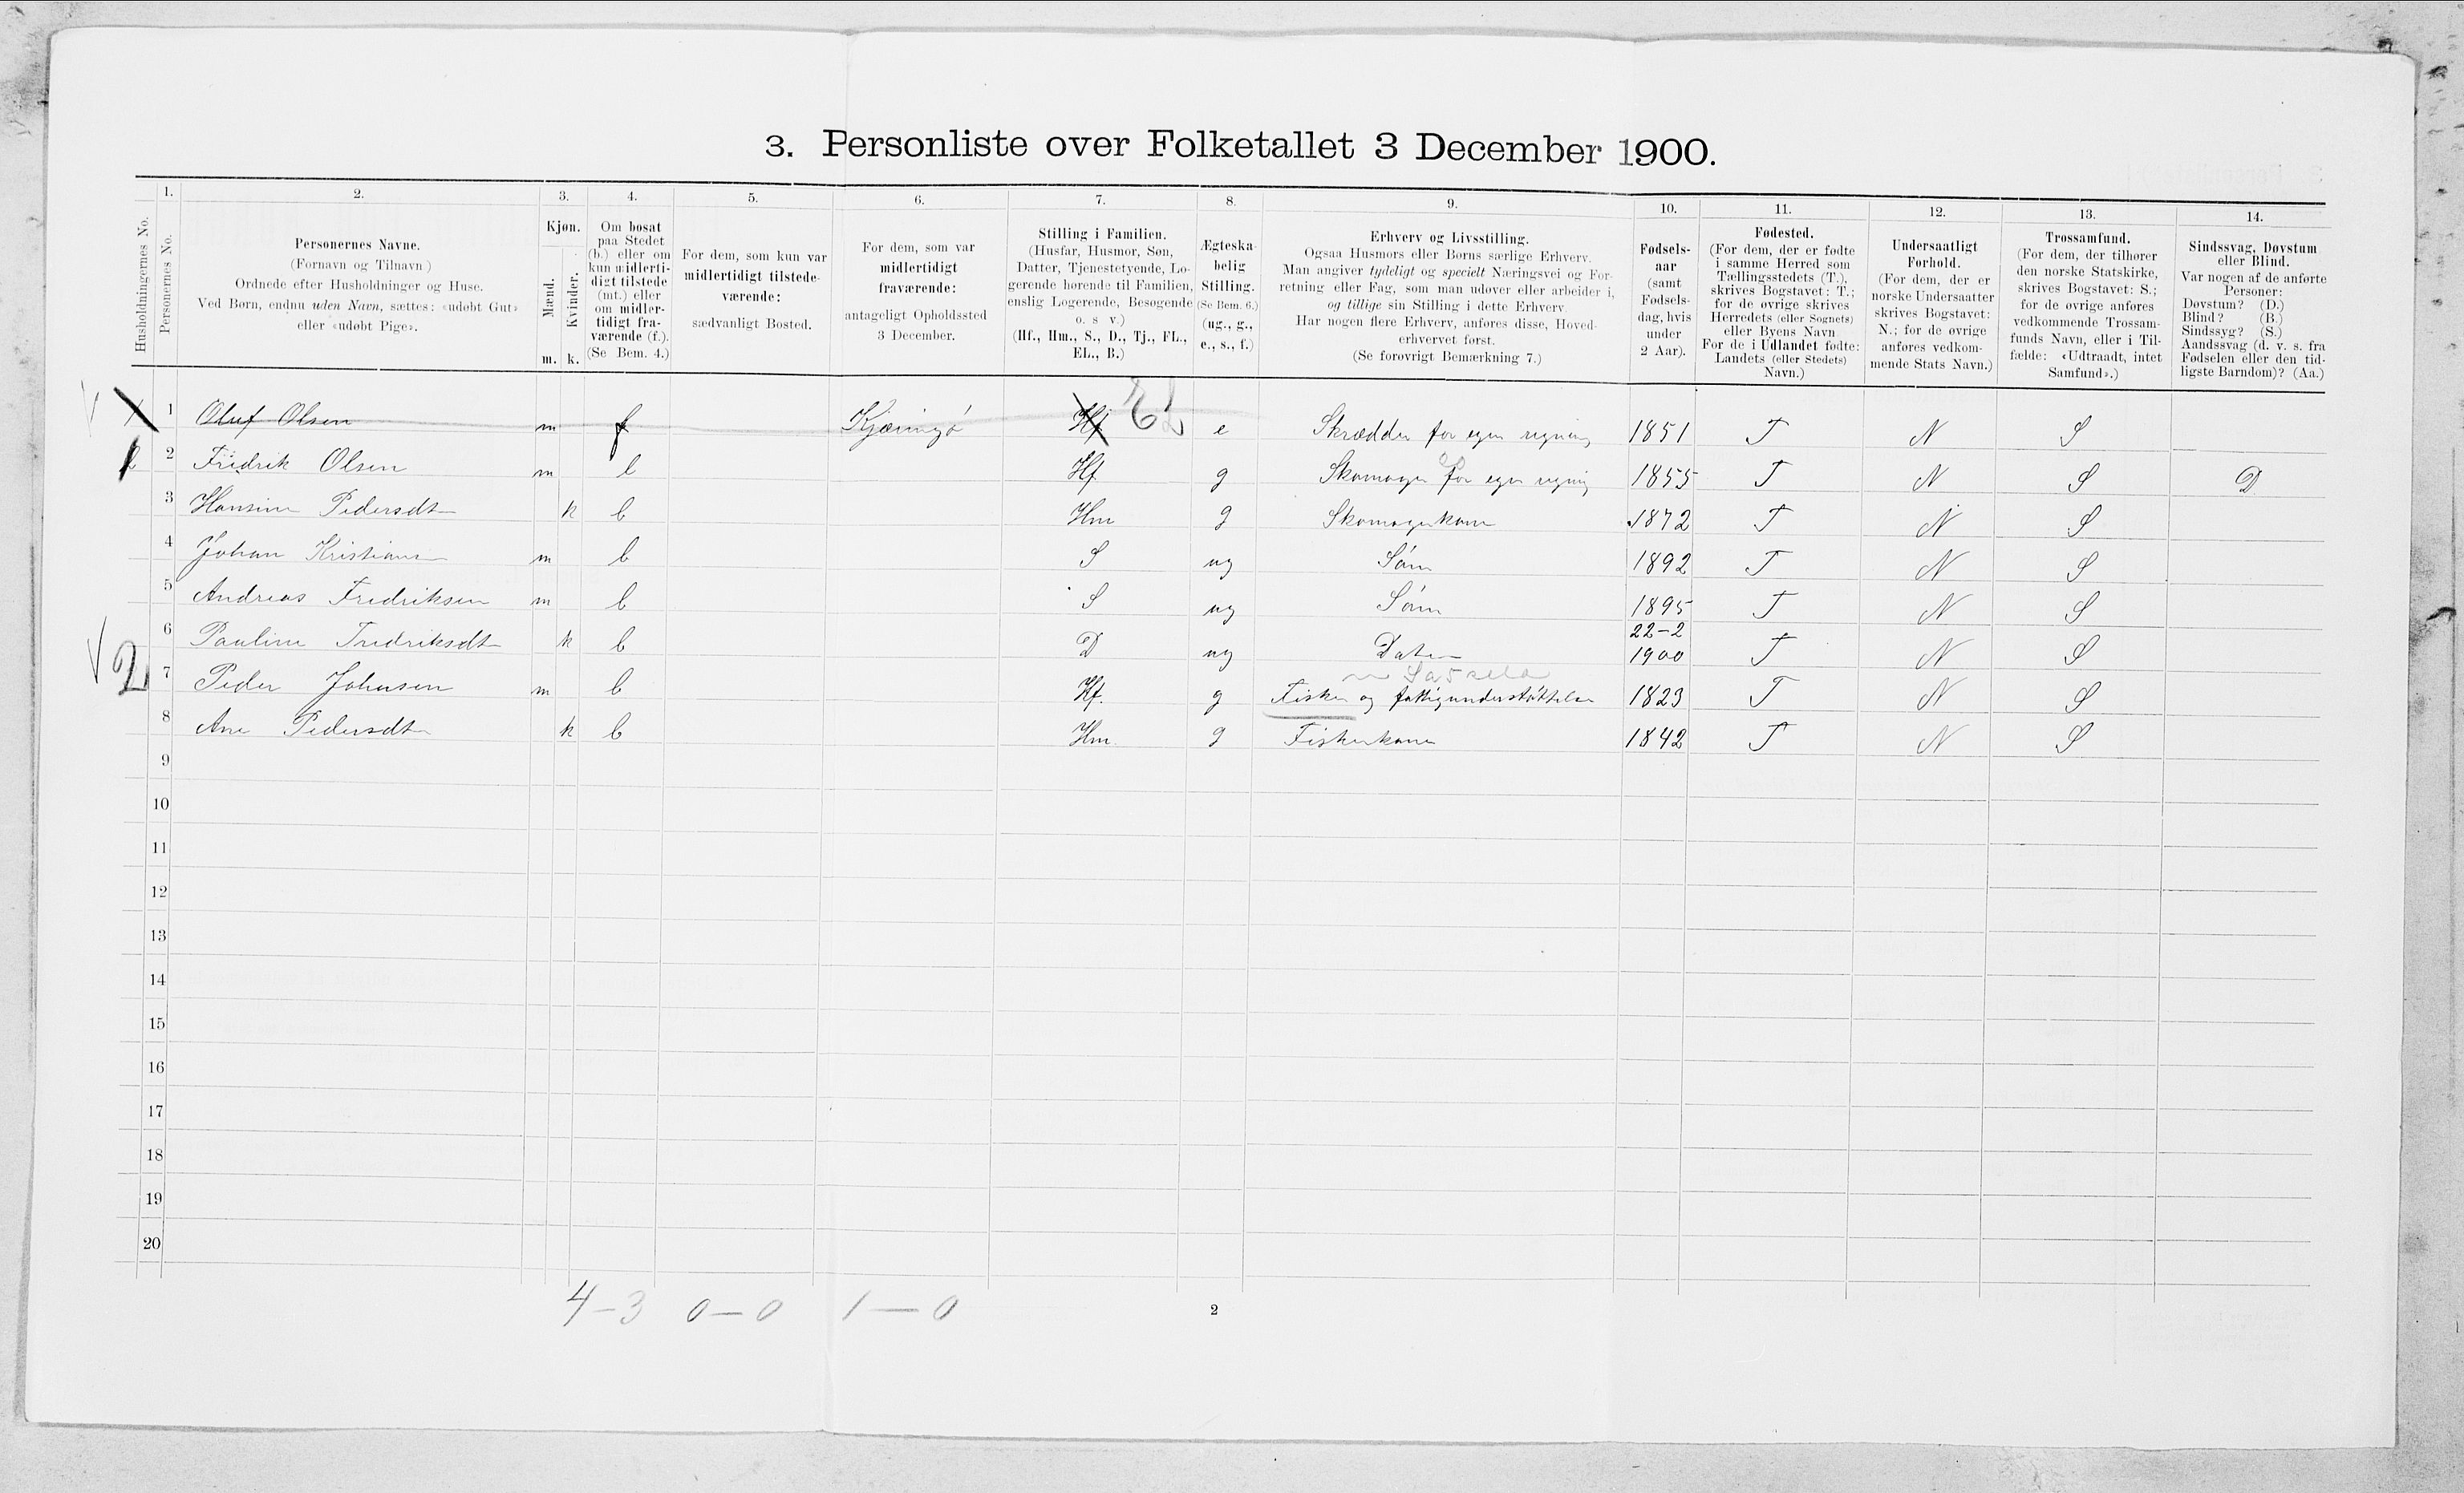 3. Personliste over Folketallet 3 December 1900.
1. 2. 3. 4. 5. 6. 7. 8. 9. 10. 11. 12. 13. 14.
Husholdningernes No.
Personernes No.
Personernes Navne.
(Fornavn og Tilnavn)
Ordnede efter Husholdninger og Huse.
Ved Børn, endnu uden Navn, sættes: «udøbt Gut»
eller «udøbt Pige».
Kjøn.
Mænd.
Kvinder.
m. k.
Om bosat
paa Stedet
(b.) eller om
kun midlerti-
digt tilstede
(mt.) eller
om midler-
tidigt fra-
værende (f.).
(Se Bem. 4.)
For dem, som kun var
midlertidigt tilstede-
værende:
sædvanligt Bosted.
For dem, som var
midlertidigt
fraværende:
antageligt Opholdssted
3 December.
Stilling i Familien.
(Husfar, Husmor, Søn,
Datter, Tjenestetyende, Lo-
gerende hørende til Familien,
enslig Logerende, Besøgende
o. s v.)
(Hf., Hm., S., D., Tj., FL.,
EL., B.)
Ægteska-
belig
Stilling.
(Se Bem. 6.)
(ug., g.,
e., s., f.)
Erhverv og Livsstilling.
Ogsaa Husmors eller Børns særlige Erhverv.
Man angiver tydeligt og specielt Næringsvei og For-
retning eller Fag, som man udøver eller arbeider i,
og tillige sin Stilling i dette Erhverv.
Har nogen flere Erhverv, anføres disse, Hoved-
erhvervet først.
(Se forøvrigt Bemærkning 7.)
Fødsels-
aar
(samt
Fødsels-
dag, hvis
under
2 Aar).
Fødested.
(For dem, der er fødte
i samme Herred som
Tællingsstedets (T.),
skrives Bogstavet: T.;
for de øvrige skrives
Herredets (eller Sognets)
eller Byens Navn
For de i Udlandet fødte:
Landets (eller Stedets)
Navn.)
Undersaatligt
Forhold.
(For dem, der er
norske Undersaatter
skrives Bogstavet:
N.; for de øvrige
anføres vedkom-
mende Stats Navn.)
Trossamfund.
(For dem, der tilhører
den norske Statskirke,
skrives Bogstavet: S.;
for de øvrige anføres
vedkommende Trossam-
funds Navn, eller i Til-
fælde: «Udtraadt, intet
Samfund».)
Sindssvag, Døvstum
eller Blind.
Var nogen af de anførte
Personer:
Døvstum? (D.)
Blind? (B.)
Sindssyg? (S.)
Aandssvag (d. v. s. fra
Fødselen eller den tid-
ligste Barndom)? (Aa.)
1 Oluf Olsen m f Kjæringø Hf EL e Skrædder for egen regning 1851 T N S
2 Fridrik Olsen m b Hf g Skomager for egen regning 1855 T N S D
3 Hansine Pedersdt k b Hm g Skomagerkone 1872 T N S
4 Johan Kristian m b S ug Søn 1892 T N S
5 Andreas Fredriksen m b S ug Søn 1895 T N S
6 Pauline Fredriksdt k b D ug Dater 22-2 1900 T N S
2 7 Peder Johnsen m b Hf. g Fisker og fattigunderstøttelse 1823 T N S
8 Ane Pedersdt k b Hm. g Fiskerkone 1842 T N S
9
10
11
12
13
14
15
16
17
18
19
20
4-3 0-0 1-0
2